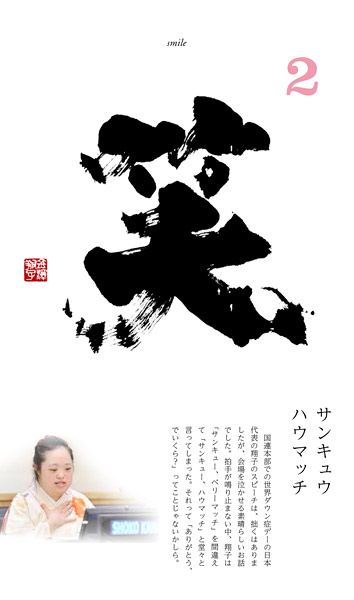 smile
2
笑
サンキュウ
ハウマッチ
国連本部での世界ダウン症デーの日本
代表の翔子のスピーチは、拙くはありま
したが、会場を泣かせる素晴らしいお話
でした。拍手が鳴り止まない中、翔子は
「サンキュー、ベリーマッチ」を間違え
て「サンキュー、ハウマッチ」と堂々と
言ってしまった。それって「ありがとう、
でいくら？」ってことじゃないかしら。
SHOKO KA